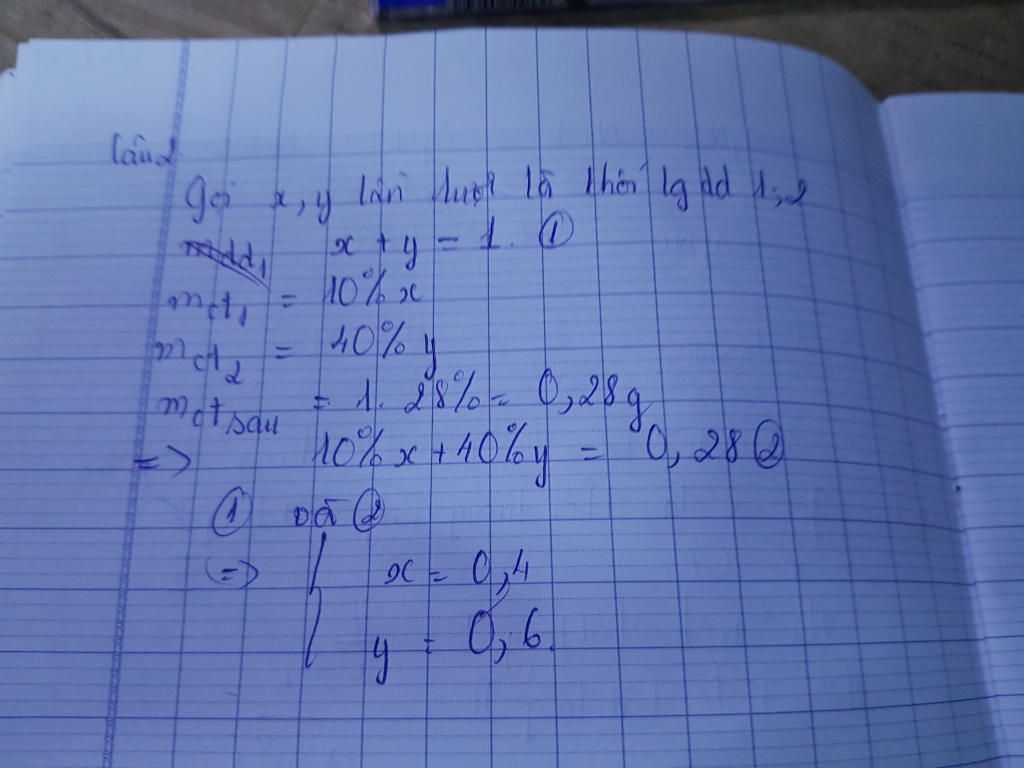 Câu 2
Gọi x, y lần lượt là khối lg dd 1, 2
mdd1 x + y = 1. ①
mct1 = 10% x
mct2 = 40% y
mct sau = 1. 28% = 0,28g
=> 10% x + 40% y = 0,28 ②
① và ②
(=> { x = 0,4
y = 0,6.